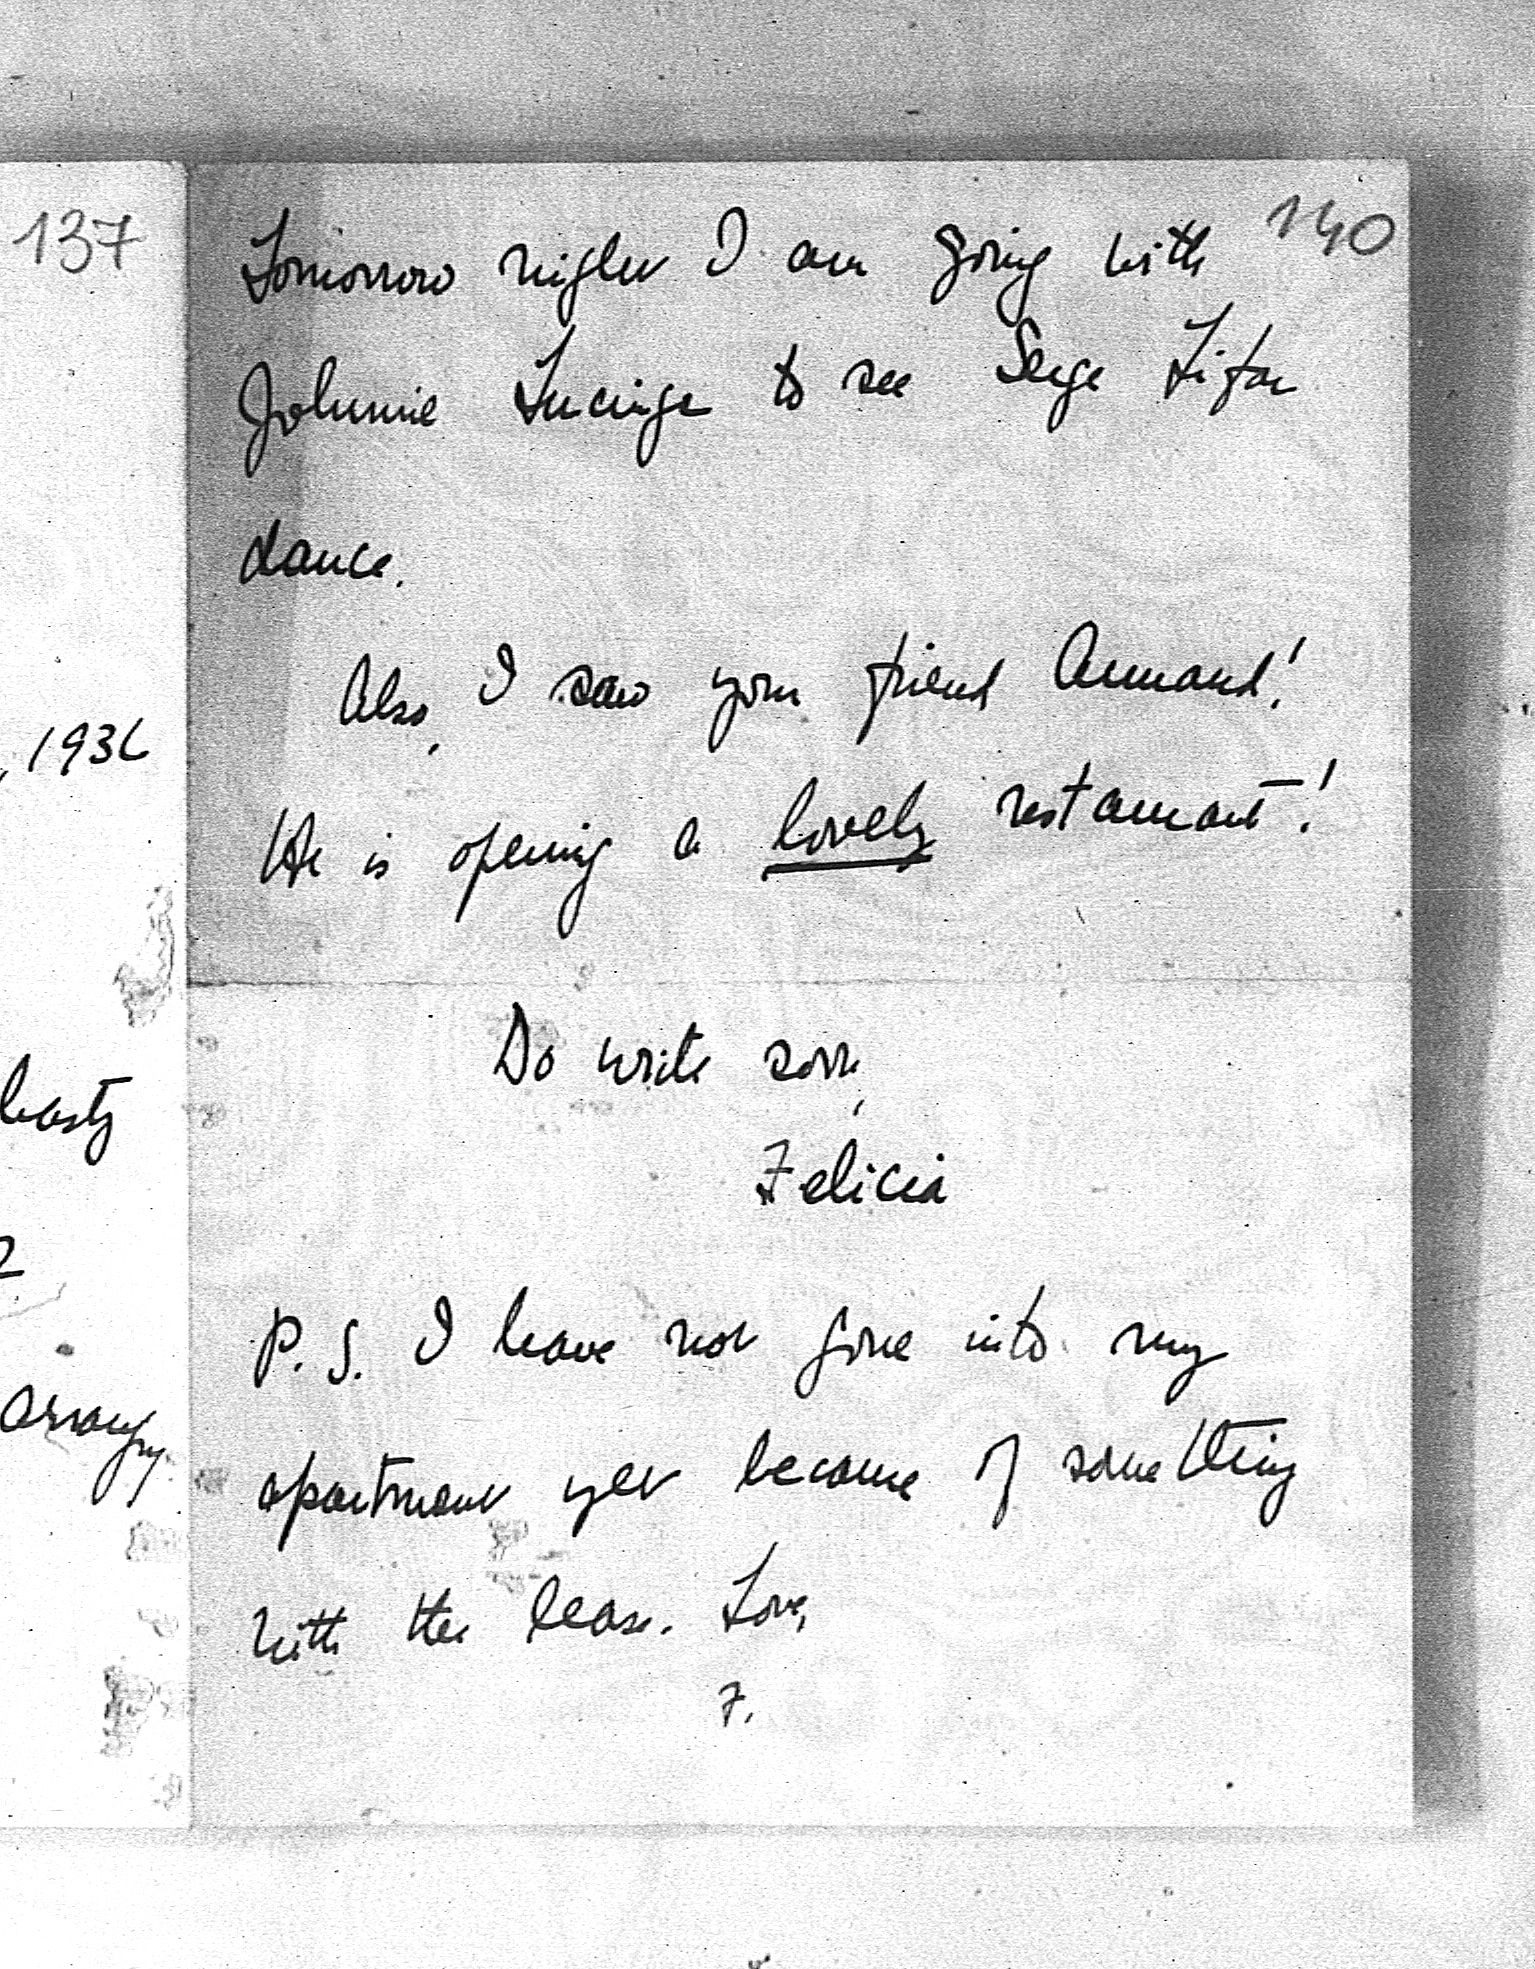 137
, 1936
hasty
2
arrange
140
Tomorrow night I am going with
Johnnie Lucinge to see Serge Lifar
dance.
Also, I saw your friend Armand!
He is opening a lovely restaurant!
Do write soon,
Felicia
P. S. I have not gone into my
apartment yet because of something
with the lease. Love,
F.